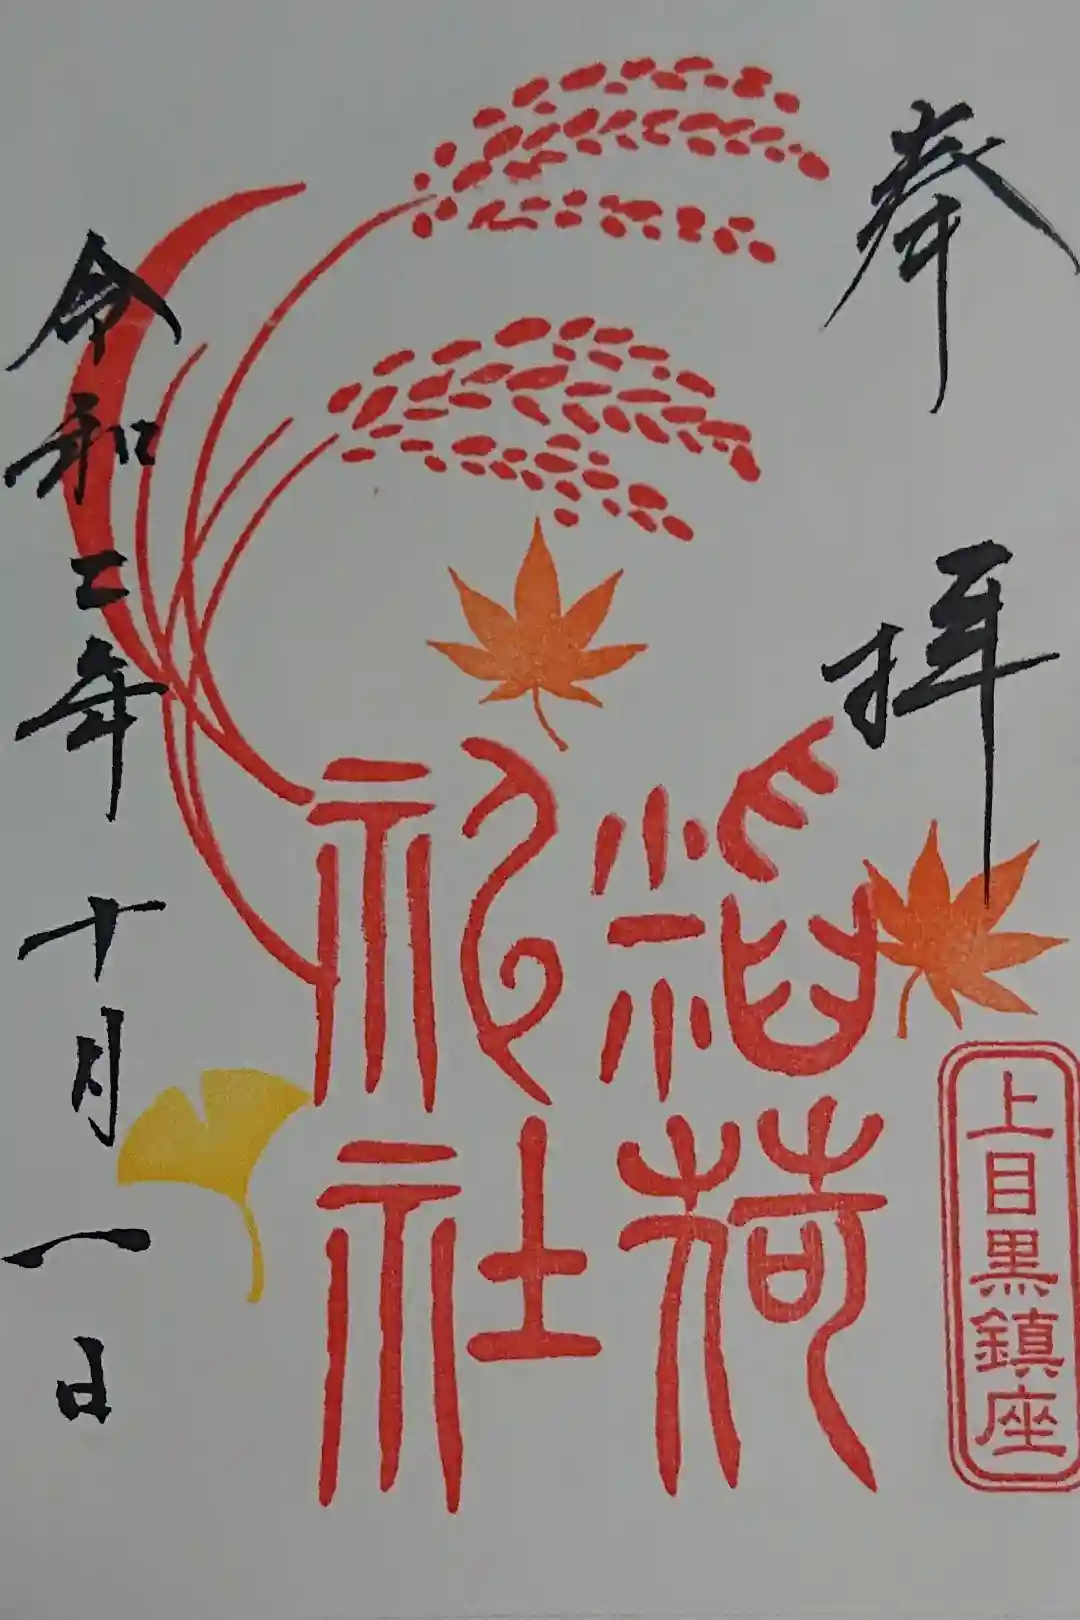 奉拝
上目黒鎮座
稲荷
神社
令和二年十月一日